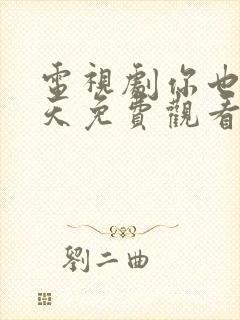 電視劇你也
天免費觀看
劉二曲